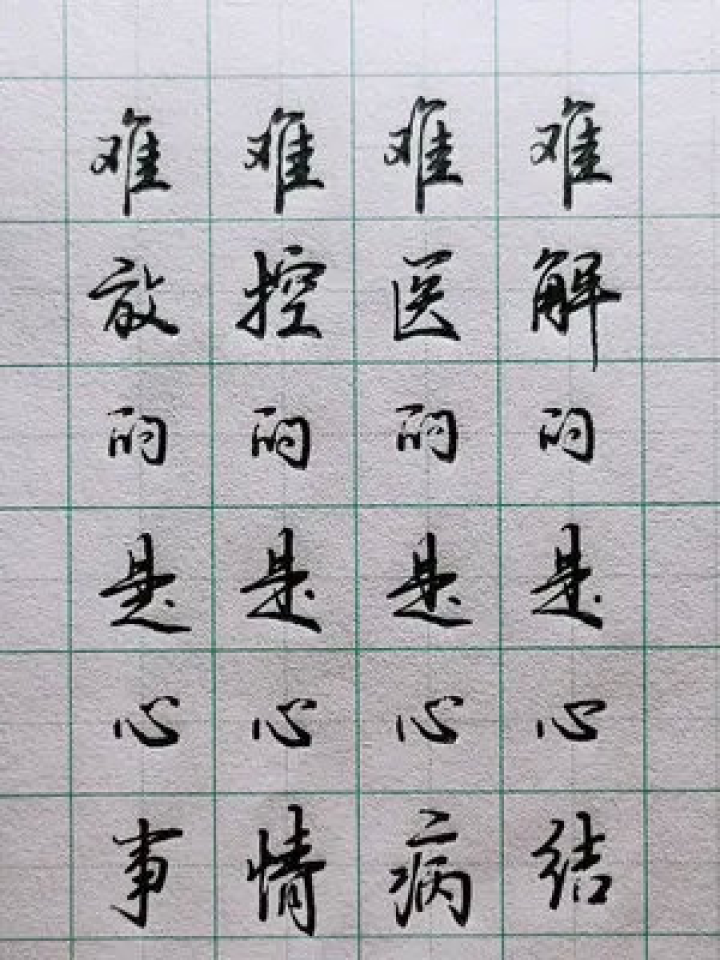 难解的是心结
难医的是心病
难控的是心情
难放的是心事